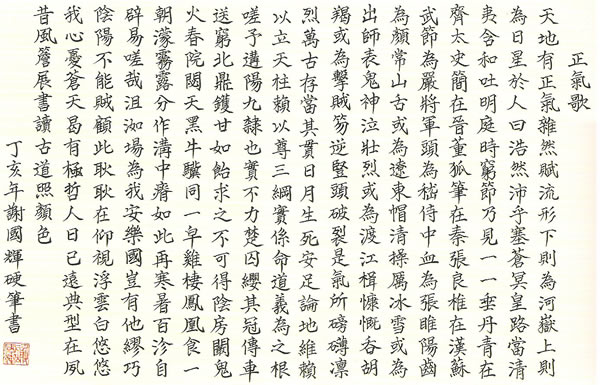 正氣歌
天地有正氣雜然賦流形下則為河嶽上則
為日星於人曰浩然沛乎塞蒼冥皇路當清
夷含和吐明庭時窮節乃見一一垂丹青在
齊太史簡在晉董狐筆在秦張良椎在漢蘇
武節為嚴將軍頭為嵇侍中血為張睢陽齒
為顏常山舌或為遼東帽清操厲冰雪或為
出師表鬼神泣壯烈或為渡江楫慷慨吞胡
羯或為擊賊笏逆豎頭破裂是氣所磅礴凜
烈萬古存當其貫日月生死安足論地維賴
以立天柱賴以尊三綱實係命道義為之根
嗟予遘陽九隸也實不力楚囚纓其冠傳車
送窮北鼎鑊甘如飴求之不可得陰房闃鬼
火春院閟天黑牛驥同一皁雞棲鳳凰食一
朝濛霧露分作溝中瘠如此再寒暑百沴自
辟易嗟哉沮洳場為我安樂國豈有他繆巧
陰陽不能賊顧此耿耿在仰視浮雲白悠悠
我心憂蒼天曷有極哲人日已遠典型在夙
昔風簷展書讀古道照顏色
丁亥年謝國輝硬筆書